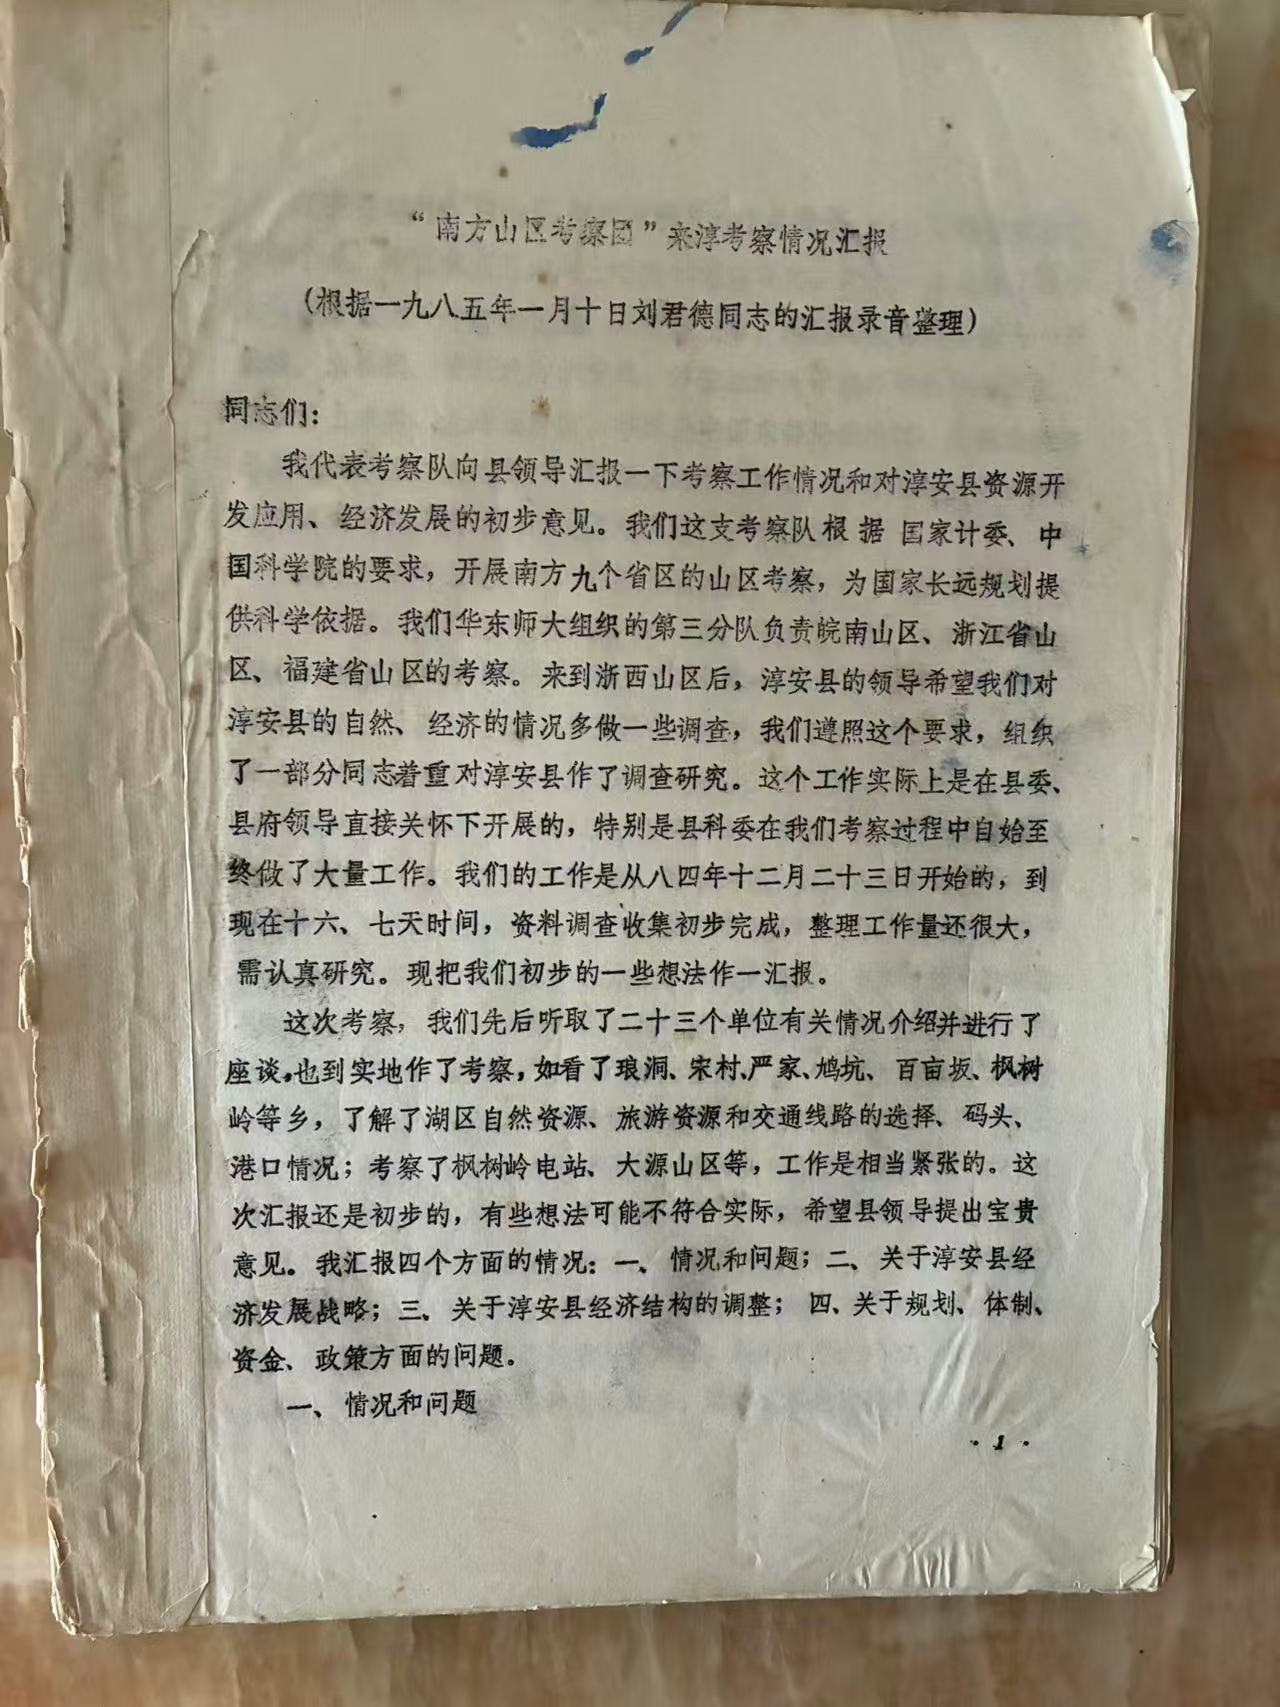 “南方山区考察团”来淳考察情况汇报
(根据一九八五年一月十日刘君德同志的汇报录音整理)
同志们：
我代表考察队向县领导汇报一下考察工作情况和对淳安县资源开
发应用、经济发展的初步意见。我们这支考察队根据 国家计委、中
国科学院的要求，开展南方九个省区的山区考察，为国家长远规划提
供科学依据。我们华东师大组织的第三分队负责皖南山区、浙江省山
区、福建省山区的考察。来到浙西山区后，淳安县的领导希望我们对
淳安县的自然、经济的情况多做一些调查，我们遵照这个要求，组织
了一部分同志着重对淳安县作了调查研究。这个工作实际上是在县委、
县府领导直接关怀下开展的，特别是县科委在我们考察过程中自始至
终做了大量工作。我们的工作是从八四年十二月二十三日开始的，到
现在十六、七天时间，资料调查收集初步完成，整理工作量还很大，
需认真研究。现把我们初步的一些想法作一汇报。
这次考察，我们先后听取了二十三个单位有关情况介绍并进行了
座谈，也到实地作了考察，如看了琅洞、宋村、严家、鸠坑、百亩坂、枫树
岭等乡，了解了湖区自然资源、旅游资源和交通线路的选择、码头、
港口情况；考察了枫树岭电站、大源山区等，工作是相当紧张的。这
次汇报还是初步的，有些想法可能不符合实际，希望县领导提出宝贵
意见。我汇报四个方面的情况：一、情况和问题；二、关于淳安县经
济发展战略；三、关于淳安县经济结构的调整；四、关于规划、体制、
资金、政策方面的问题。
一、情况和问题
·1·